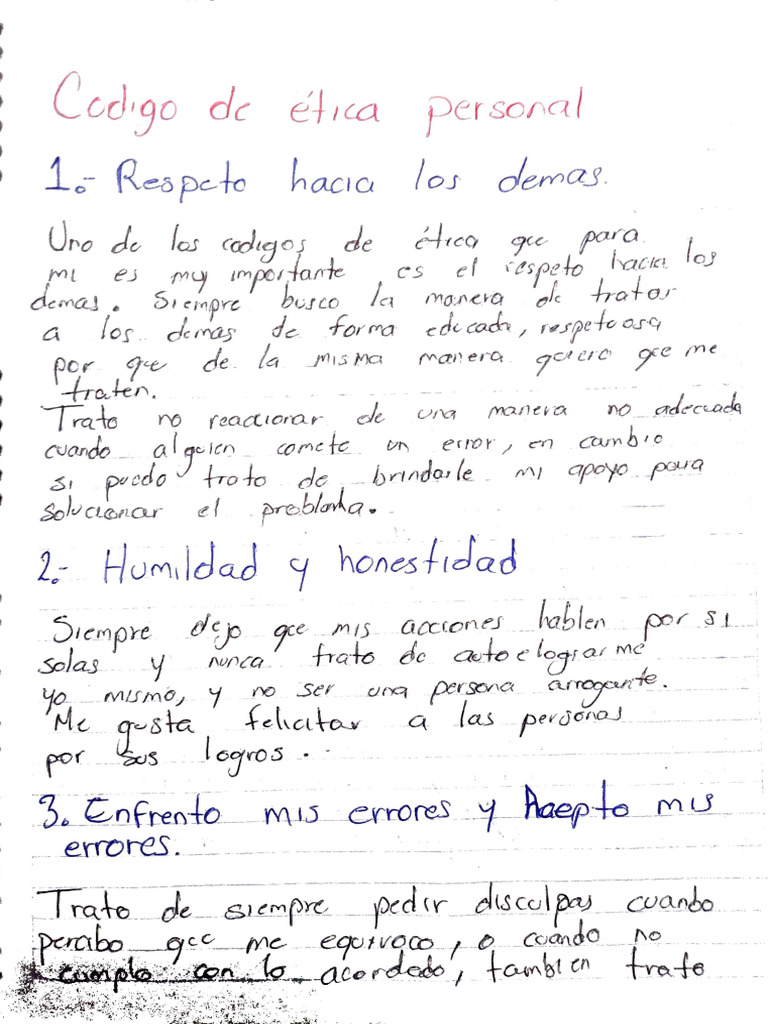 Codigo de ética personal
1.- Respeto hacia los demas.
Uno de los codigos de ética que para
mi es muy importante es el respeto hacia los
demas. Siempre busco la manera de tratar
a los demas de forma educada, respetuosa
por que de la misma manera quiero que me
traten.
Trato no reaccionar de una manera no adecuada
cuando alguien comete un error, en cambio
si puedo trato de brindarle mi apoyo para
solucionar el problema.
2.- Humildad y honestidad
Siempre dejo que mis acciones hablen por si
solas y nunca trato de autoelograrme
yo mismo, y no ser una persona arrogante.
Me gusta felicitar a las personas
por sus logros.
3. Enfrento mis errores y Acepto mis
errores.
Trato de siempre pedir disculpas cuando
percibo que me equivoco, o cuando no
cumplo con lo acordado, tambien trato